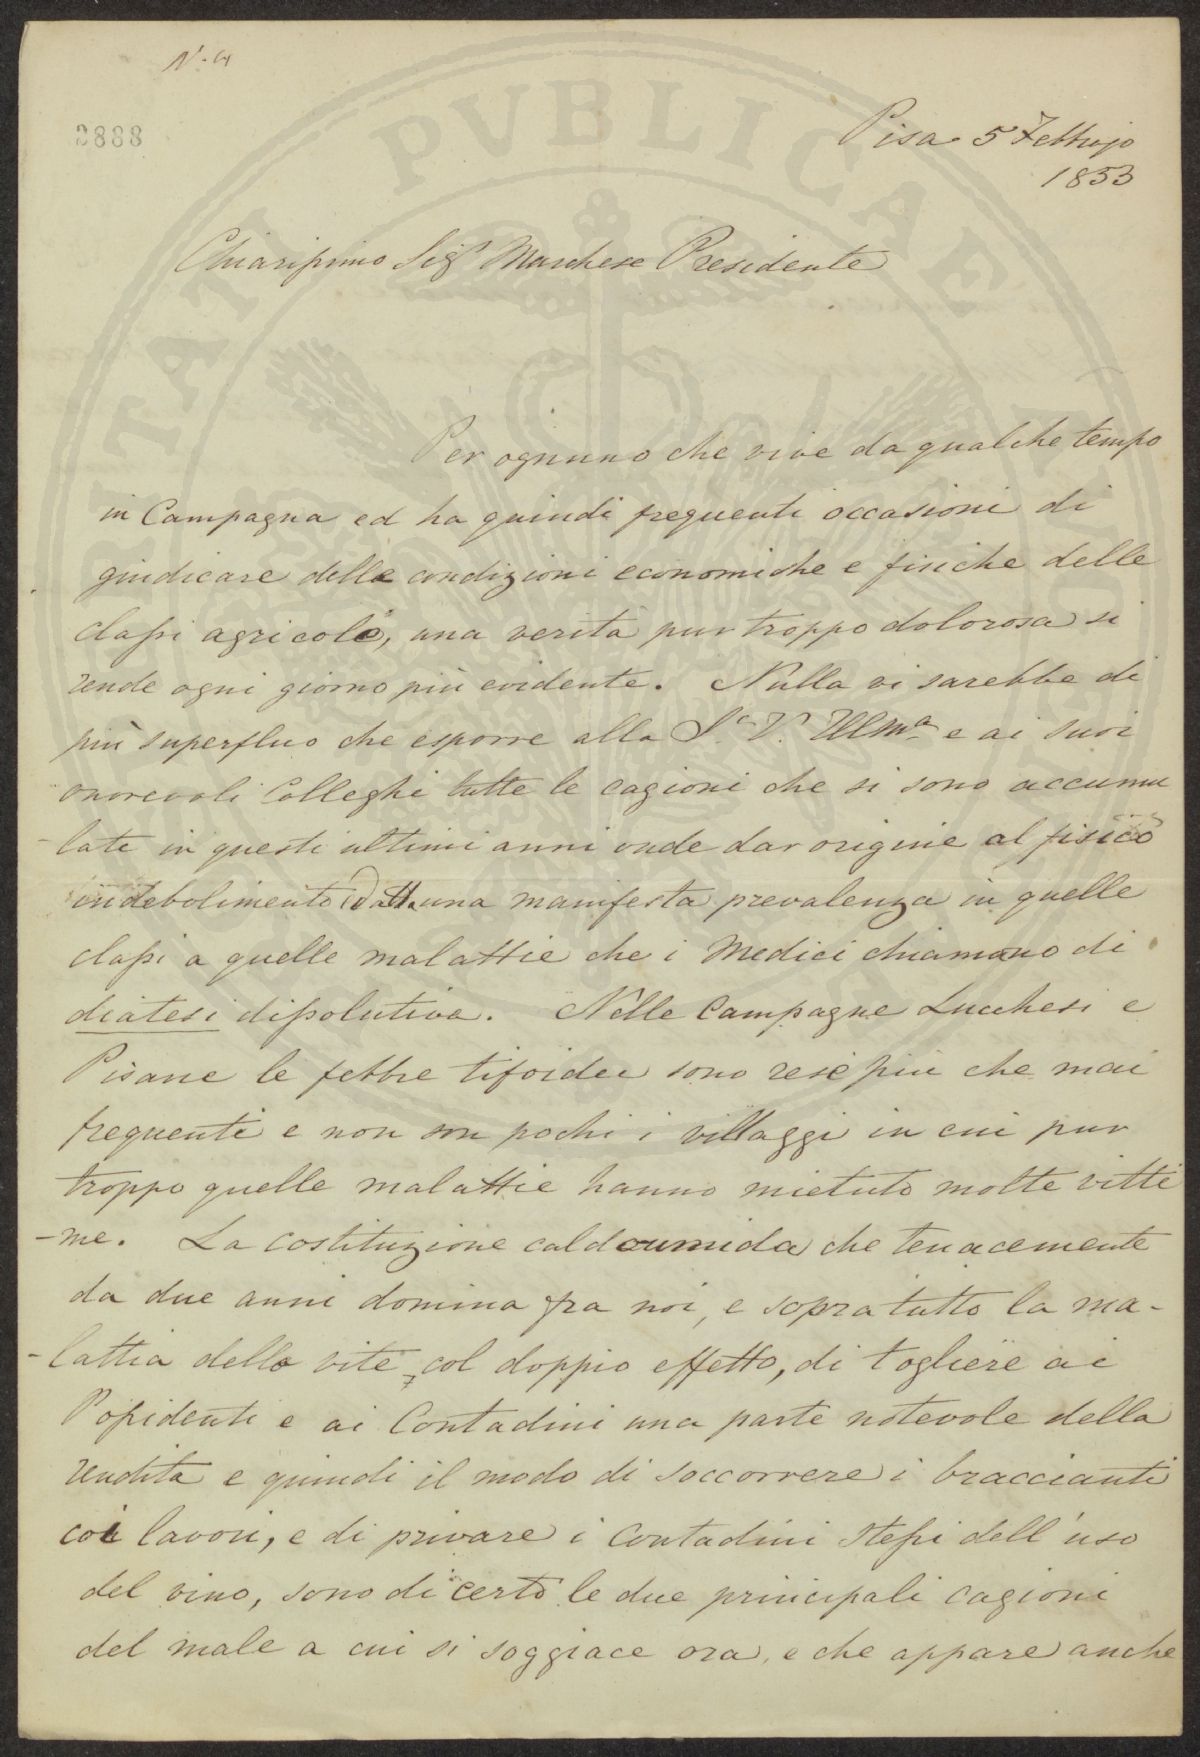 N. 4
2888
Pisa 5 Febbrajo
1853
Chiarissimo Sigr Marchese Presidente
Per ognuno che vive da qualche tempo
in Campagna ed ha quindi frequenti occasioni di
giudicare delle condizioni economiche e fisiche delle
classi agricole, una verità pur troppo dolorosa si
rende ogni giorno più evidente. Nulla vi sarebbe di
più superfluo che esporre alla S. V. Illma e ai suoi
onorevoli Colleghi tutte le cagioni che si sono accumu
-late in questi ultimi anni onde dar origine al fisico
indebolimento ed a una manifesta prevalenza in quelle
classi a quelle malattie che i Medici chiamano di
diatesi dissolutiva. Nelle Campagne Lucchesi e
Pisane le febbre tifoidee sono rese più che mai
frequenti e non son pochi i villaggi in cui pur
troppo quelle malattie hanno mietuto molte vitti
-me. La costituzione caldoumida che tenacemente
da due anni domina fra noi, e sopratutto la ma-
-lattia della vite, col doppio effetto, di togliere ai
Possidenti e ai Contadini una parte notevole della
rendita e quindi il modo di soccorrere i braccianti
coi lavori, e di privare i Contadini stessi dell'uso
del vino, sono di certo le due principali cagioni
del male a cui si soggiace ora, e che appare anche
PVBLICAE